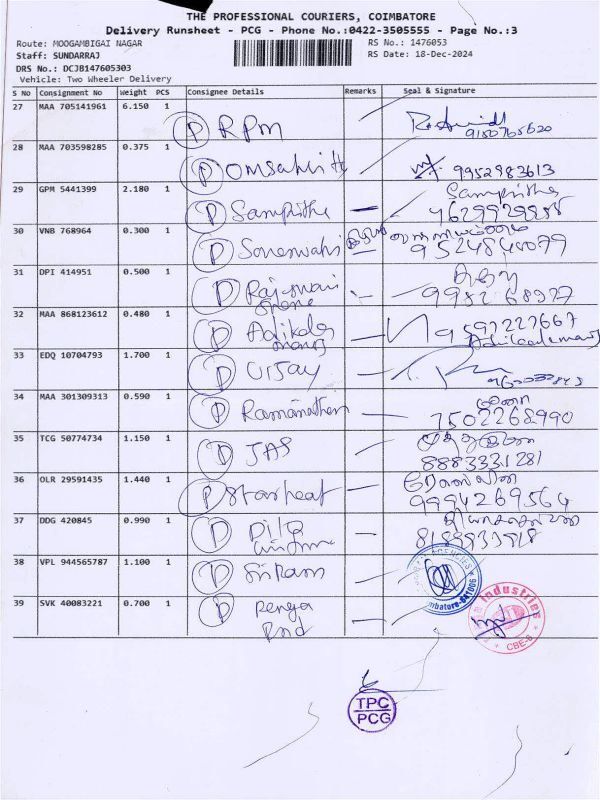 THE PROFESSIONAL COURIERS, COIMBATORE
Delivery Runsheet - PCG - Phone No.:0422-3505555 - Page No.:3
Route: MOOGAMBIGAI NAGAR RS No.: 1476053
Staff: SUNDARRAJ RS Date: 18-Dec-2024
DRS No.: DCJB147605303
Vehicle: Two Wheeler Delivery
S No Consignment No Weight PCS Consignee Details Remarks Seal & Signature
27 MAA 705141961 6.150 1
D RPM
9150765620
28 MAA 703598285 0.375 1
D 9952983613
29 GPM 5441399 2.180 1 Sampritha
D Sampritha
30 VNB 768964 0.300 1
D 9524840079
31 DPI 414951 0.500 1
D
32 MAA 868123612 0.480 1
D 9597227667
33 EDQ 10704793 1.700 1
D Vijay
34 MAA 301309313 0.590 1
D Ramanathan 7502268990
35 TCG 50774734 1.150 1
D JAS 8883331281
36 OLR 29591435 1.440 1
D Starheat 9994269564
37 DDG 420845 0.990 1
D
38 VPL 944565787 1.100 1
D Sri Ram
39 SVK 40083221 0.700 1
D Renga
Industries
CBE-6
TPC
PCG